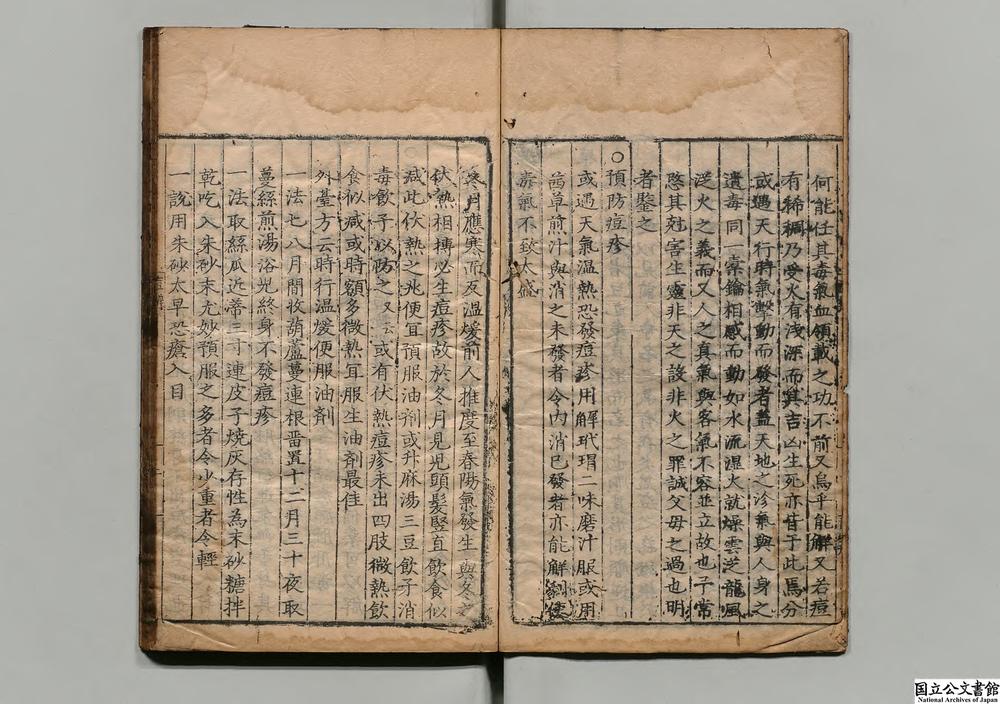 何能任其毒氣血領載之功不前又烏乎能解又若痘
有稀稠乃受火有浅深而其吉凶生死亦皆于此焉分
或遇天行時氣擊動而發者蓋天地之沴氣與人身之
遺毒同一橐籥相感而動如水流濕火就燥雲從龍風
從火之義而又人之真氣與客氣不容並立故也予常
愍其尅害生靈非天之設非火之罪誠父母之過也明
者鑒之
○預防痘疹
或遇天氣溫熱恐發痘疹用解玳瑁二味磨汁服或用
茜草煎汁與消之未發者令内消已發者亦能解利使
毒氣不致太盛
○寒月應寒而反温煖前人推度至春陽氣發生與冬之
伏熱相搏必生痘疹故於冬月見児頭髮竪直飲食似
减此伏熱之兆便宜預服油剂或升麻湯三豆飲子消
毒飲子以防之又云或有伏熱痘疹未出四肢微熱飲
食似减或時額多微熱耳服生油劑最佳
外臺方云時行温煖便服油劑
一法七八月間收葫蘆蔓連根晋置十二月三十夜取
蔓絲煎湯浴児終身不發痘疹
一法取絲瓜近蒂三寸連皮子燒灰存性為末砂糖拌
乾吃入朱砂末尤妙預服之多者令少重者令輕
一說用朱砂太早恐瘡入目
国立公文書館
National Archives of Japan